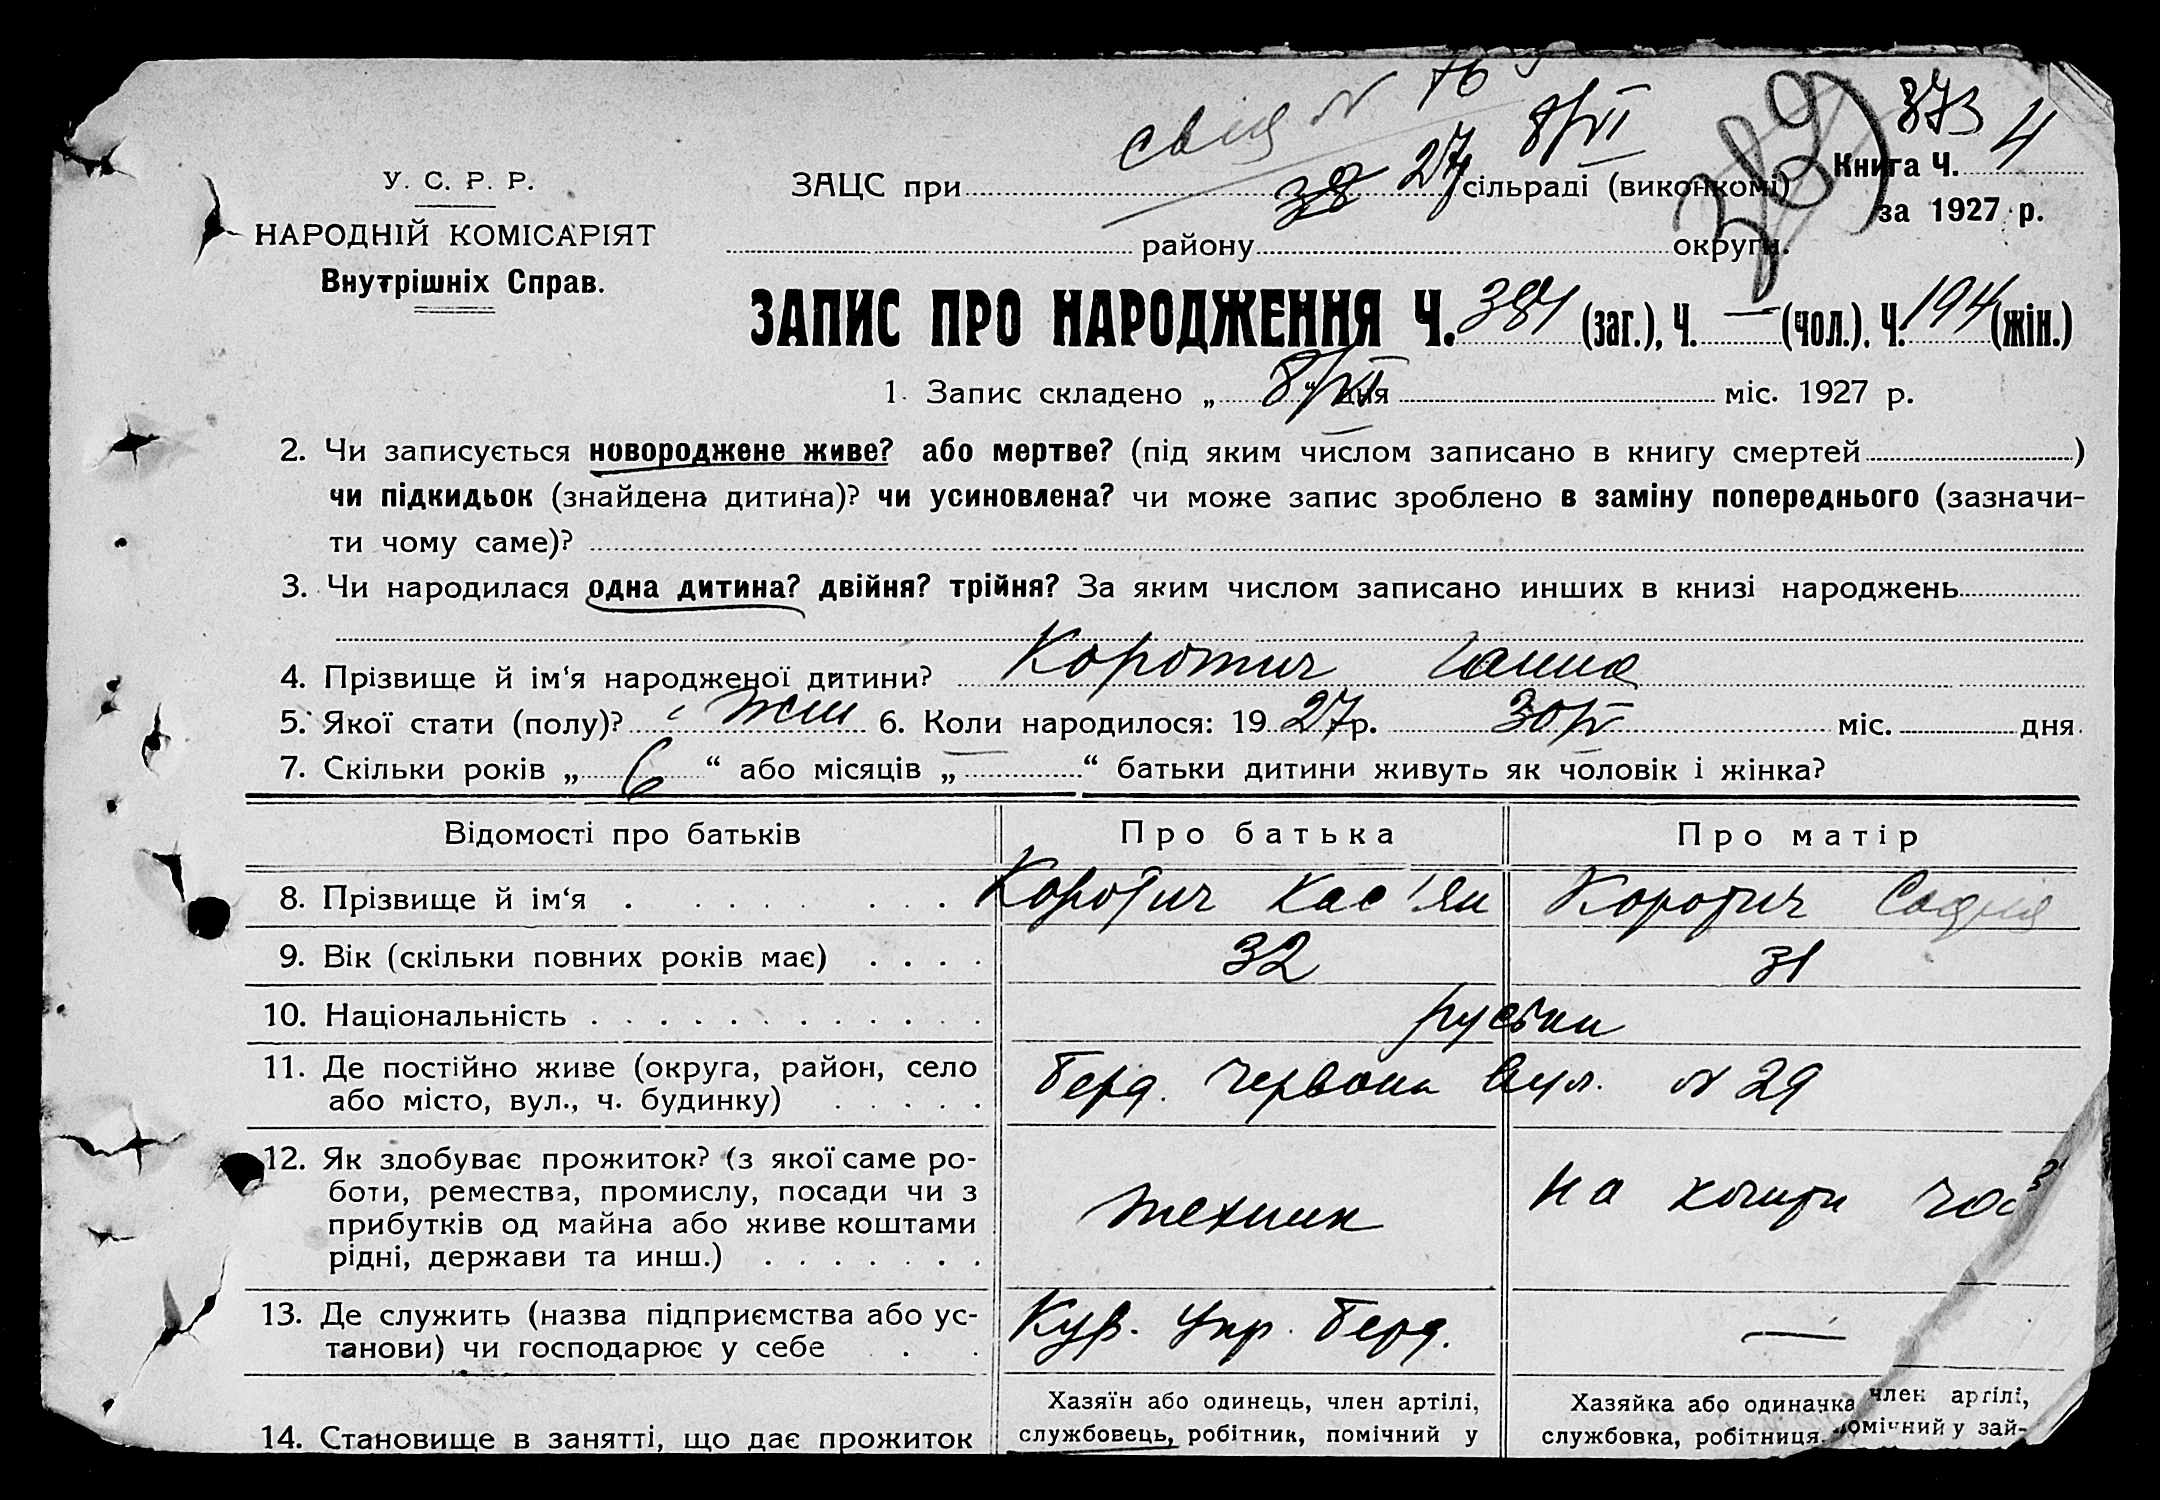 свід N 76
8/VI 27
389
373
У. С. Р. Р.
НАРОДНІЙ КОМІСАРІЯТ
Внутрішніх Справ.
ЗАЦС при 38 сільраді (виконкомі)
Книга Ч. 4
за 1927 р.
району округи.
ЗАПИС ПРО НАРОДЖЕННЯ Ч. 384 (заг.), Ч. — (чол.), Ч. 194 (жін.)
1. Запис складено „ 8/VI “ дня міс. 1927 р.
2. Чи записується новороджене живе? або мертве? (під яким числом записано в книгу смертей )
чи підкидьок (знайдена дитина)? чи усиновлена? чи може запис зроблено в заміну попереднього (зазначи-
ти чому саме)?
3. Чи народилася одна дитина? двійня? трійня? За яким числом записано инших в книзі народжень
4. Прізвище й ім‘я народженої дитини? Коротич Ганна
5. Якої стати (полу)? жін 6. Коли народилося: 19 27 р. 30/V міс. дня
7. Скільки років „ 6 “ або місяців „ — “ батьки дитини живуть як чоловік і жінка?
Відомості про батьків Про батька Про матір
8. Прізвище й ім‘я Коротич Кас'ян Коротич София
9. Вік (скільки повних років має) 32 31
10. Національність руські
11. Де постійно живе (округа, район, село
або місто, вул., ч. будинку) Берд. Червона вул. N 29
12. Як здобуває прожиток? (з якої саме ро-
боти, ремества, промислу, посади чи з
прибутків од майна або живе коштами
рідні, держави та инш.) технік На кошти чол
13. Де служить (назва підприємства або ус-
танови) чи господарює у себе Кур. Упр. Берд. —
Хазяїн або одинець, член артілі, Хазяйка або одиначка член артілі,
14. Становище в занятті, що дає прожиток службовець, робітник, помічний у службовка, робітниця, помічний у зай-